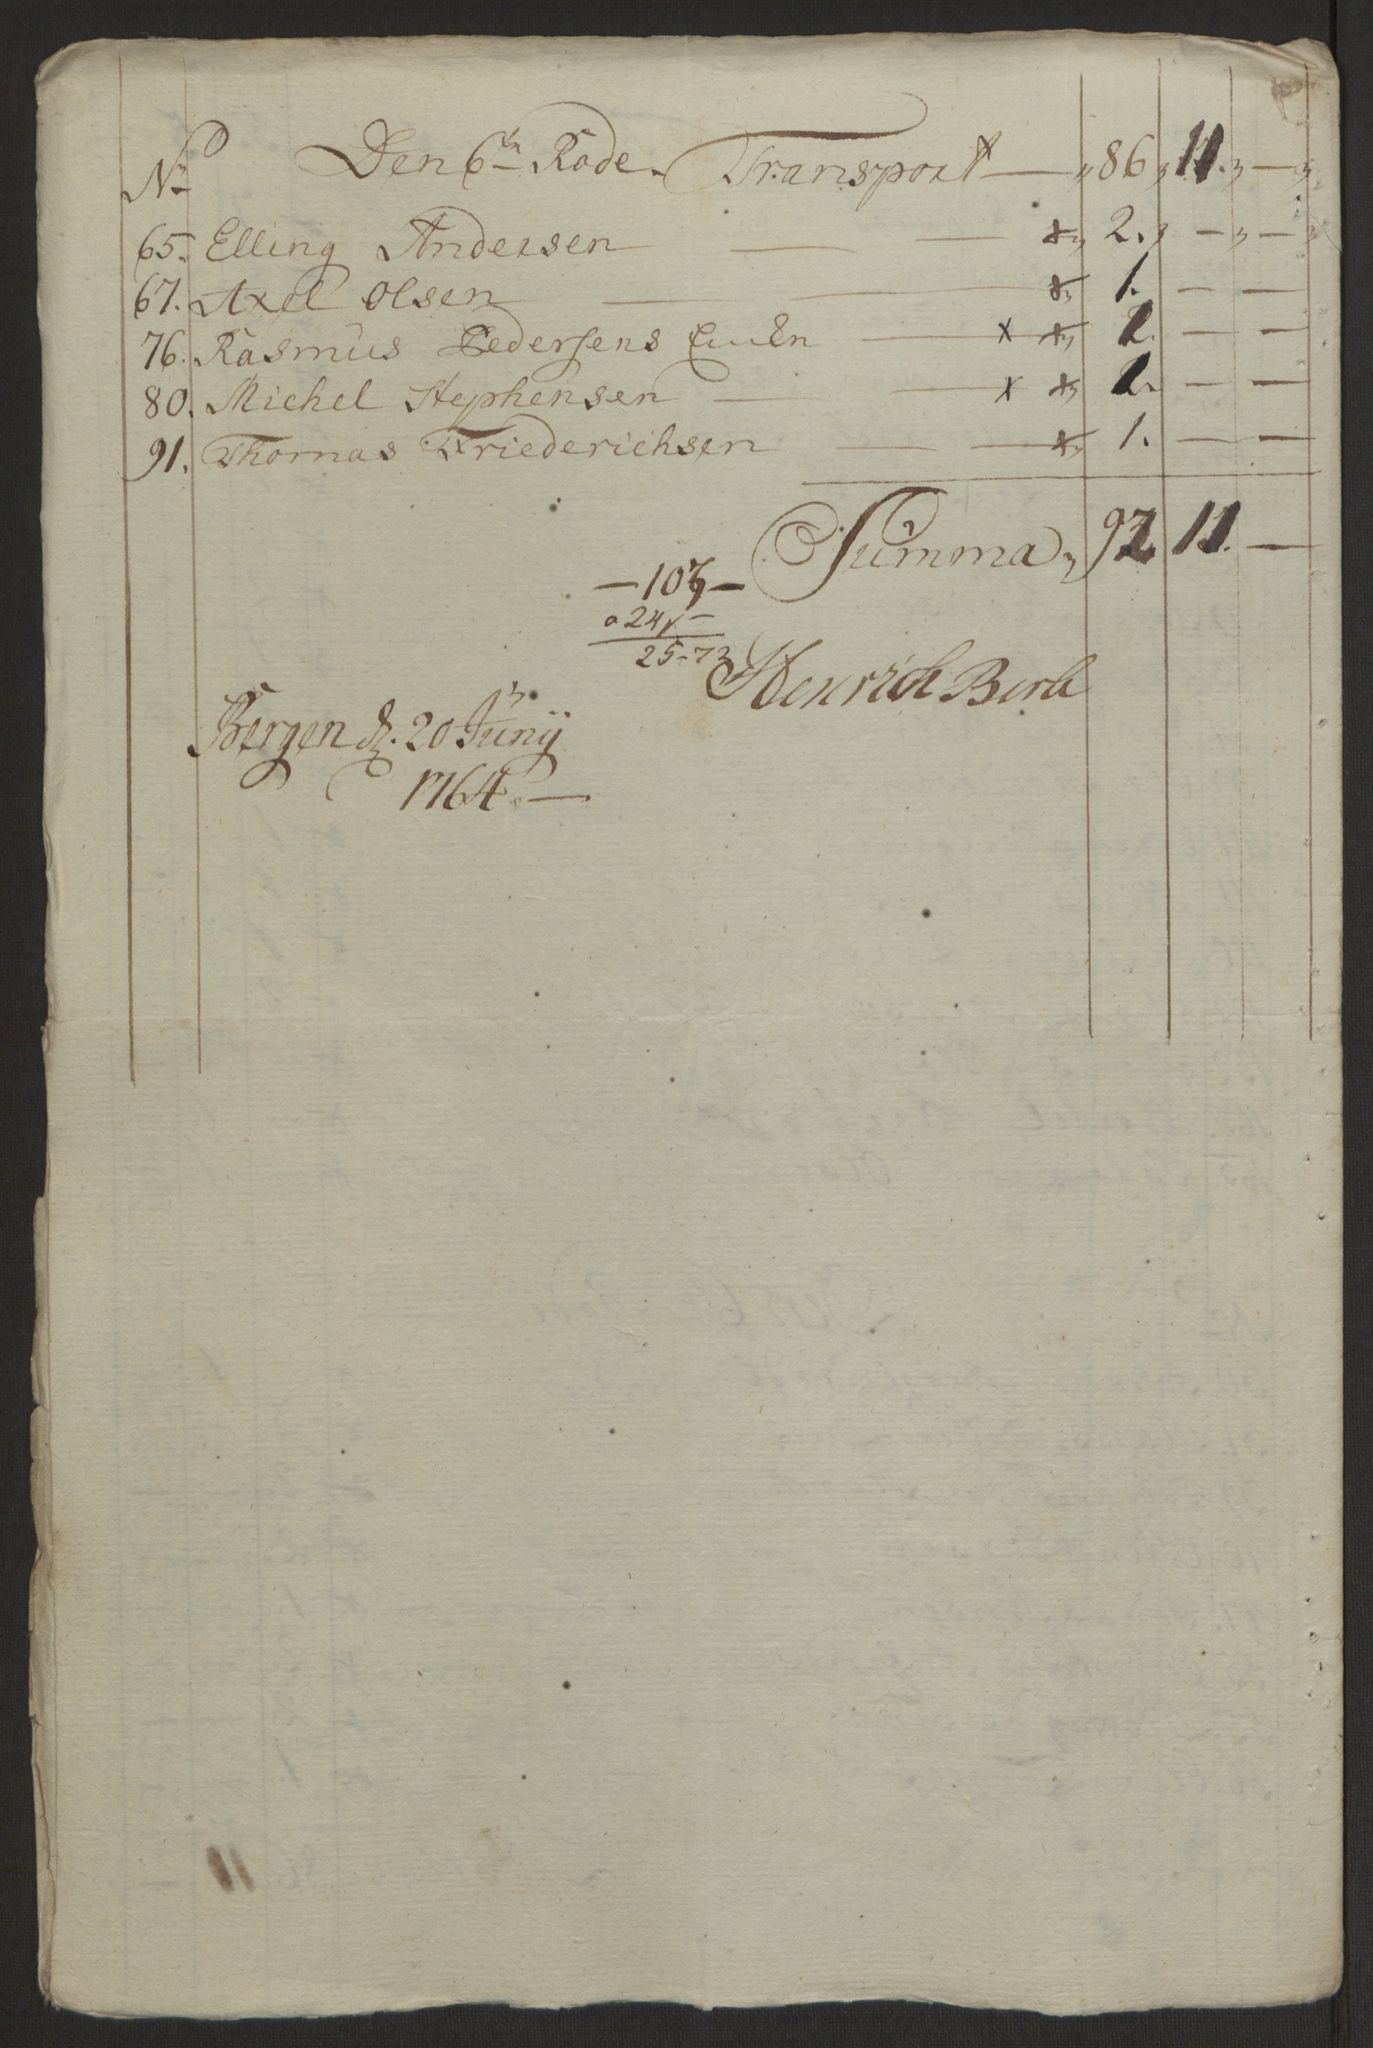 No Den 6te Rode. Transport — 86 11. —
65. Elling Andersen — — * 2. — —
67. Axel Olsen — — * 1. — —
76. Rasmus Pedersens Encken — x * 2. — —
80. Michel Stephensen — — x * 2. — —
91. Thomas Friederichsen — — * 1. — —
Summa 92 11. —
— 103 —
a 24 s —
25-72
Henrich Berli
Bergen d. 20 Junij
1764. —
11